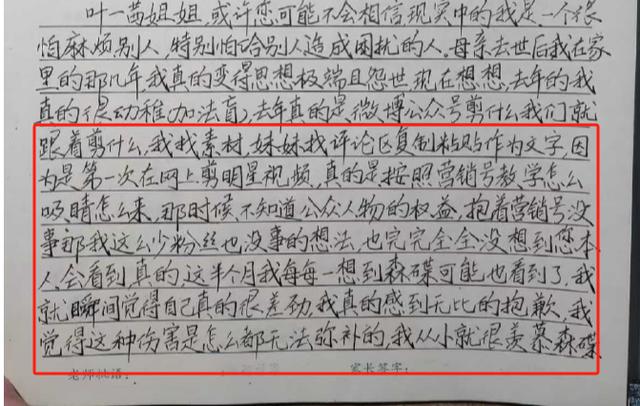 叶一茜姐姐,或许您可能不会相信现实中的我是一个很
怕麻烦别人,特别怕给别人造成困扰的人.母亲去世后我在家
里的那几年我真的变得思想极端且怨世.现在想想,去年的我
真的很幼稚(加法盲),去年真的是微博公众号剪什么我们就
跟着剪什么,我找素材,妹妹找评论区复制粘贴作为文字,因
为是第一次在网上剪明星视频,真的是按照营销号教学怎么
吸睛怎么来,那时候不知道公众人物的权益,抱着营销号没
事那我这么少粉丝也没事的想法,也完完全全没想到您本
人会看到真的,这半个月我每每一想到森碟可能也看到了,我
就瞬间觉得自己真的很差劲,我真的感到无比的抱歉,我
觉得这种伤害是怎么都无法弥补的,我从小就很羡慕森碟
老师批语: 家长签字: